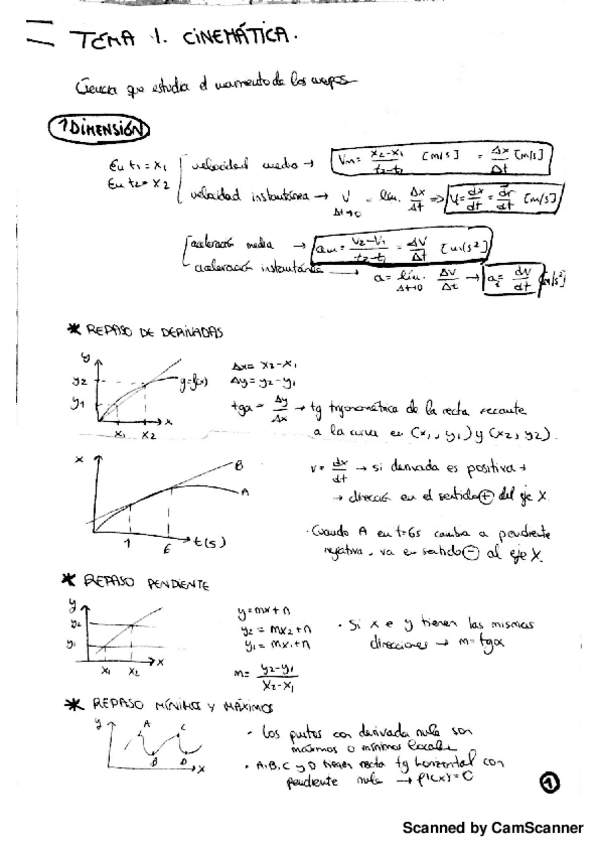 TEMA 1. CINEMÁTICA.
Ciencia que estudia el movimiento de los cuerpos
1 DIMENSIÓN
En t1 = x1
En t2 = x2
velocidad media → Vm = x2-x1 / t2-t1 [m/s] = Δx/Δt [m/s]
velocidad instantánea → V = lím. Δt→0 Δx/Δt => V = dx/dt = dr/dt [m/s]
aceleración media → am = V2-V1 / t2-t1 = ΔV/Δt [m/s²]
aceleración instantánea → a = lím. Δt→0 ΔV/Δt → a = dv/dt [m/s²]
* REPASO DE DERIVADAS
y
y2
y1
y=f(x)
x1 x2 x
Δx = x2-x1
Δy = y2-y1
tgα = Δy/Δx → tg trigonométrica de la recta secante
a la curva en (x1, y1) y (x2, y2).
x
B
A
1 6 t(s)
v = dx/dt → si derivada es positiva →
→ dirección en el sentido + del eje X.
· Cuando A en t=6s cambia a pendiente
negativa, va en sentido - al eje X.
* REPASO PENDIENTE
y
y2
y1
x1 x2 x
y = mx+n
y2 = mx2+n
y1 = mx1+n
m = y2-y1 / x2-x1
· Si x e y tienen las mismas
direcciones → m = tgα
* REPASO MÍNIMOS Y MÁXIMOS
y A C
B D x
· Los puntos con derivada nula son
máximos o mínimos locales
· A, B, C y D tienen recta tg horizontal con
pendiente nula → f'(x)=0
1
Scanned by CamScanner